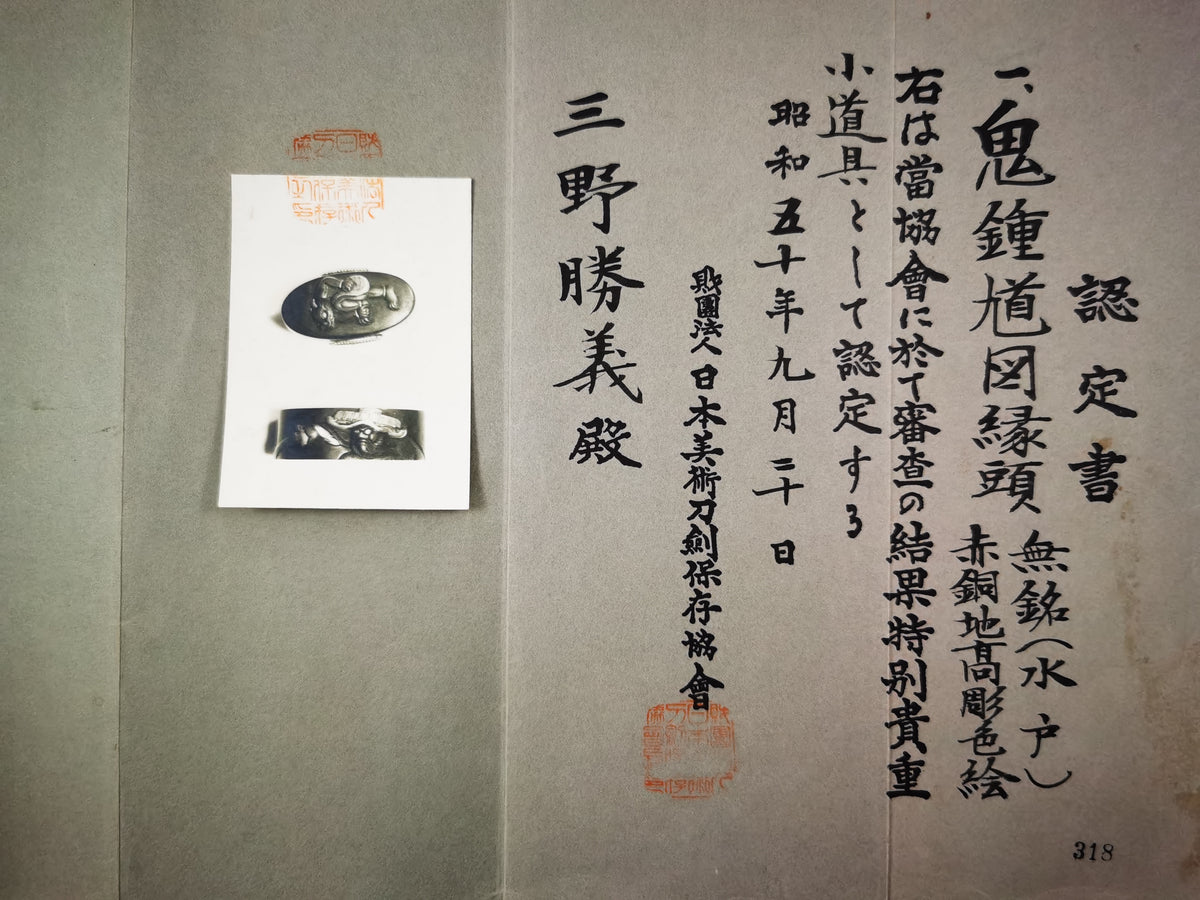 認定書
一、鬼鍾馗図縁頭 無銘(水戸)
赤銅地高彫色絵
右は當協會に於て審査の結果特別貴重
小道具として認定する
昭和五十年九月二十日
財團法人日本美術刀劍保存協會
三野勝義殿
318